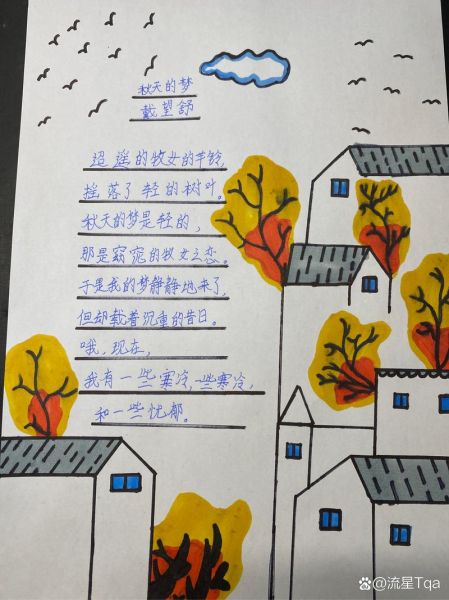 秋天的梦
戴望舒
迢遥的牧女的羊铃，
摇落了轻的树叶。
秋天的梦是轻的，
那是窈窕的牧女之恋。
于是我的梦静静地来了，
但却载着沉重的昔日。
哦，现在，
我有一些寒冷，一些寒冷，
和一些忧郁。
@流星Tqa